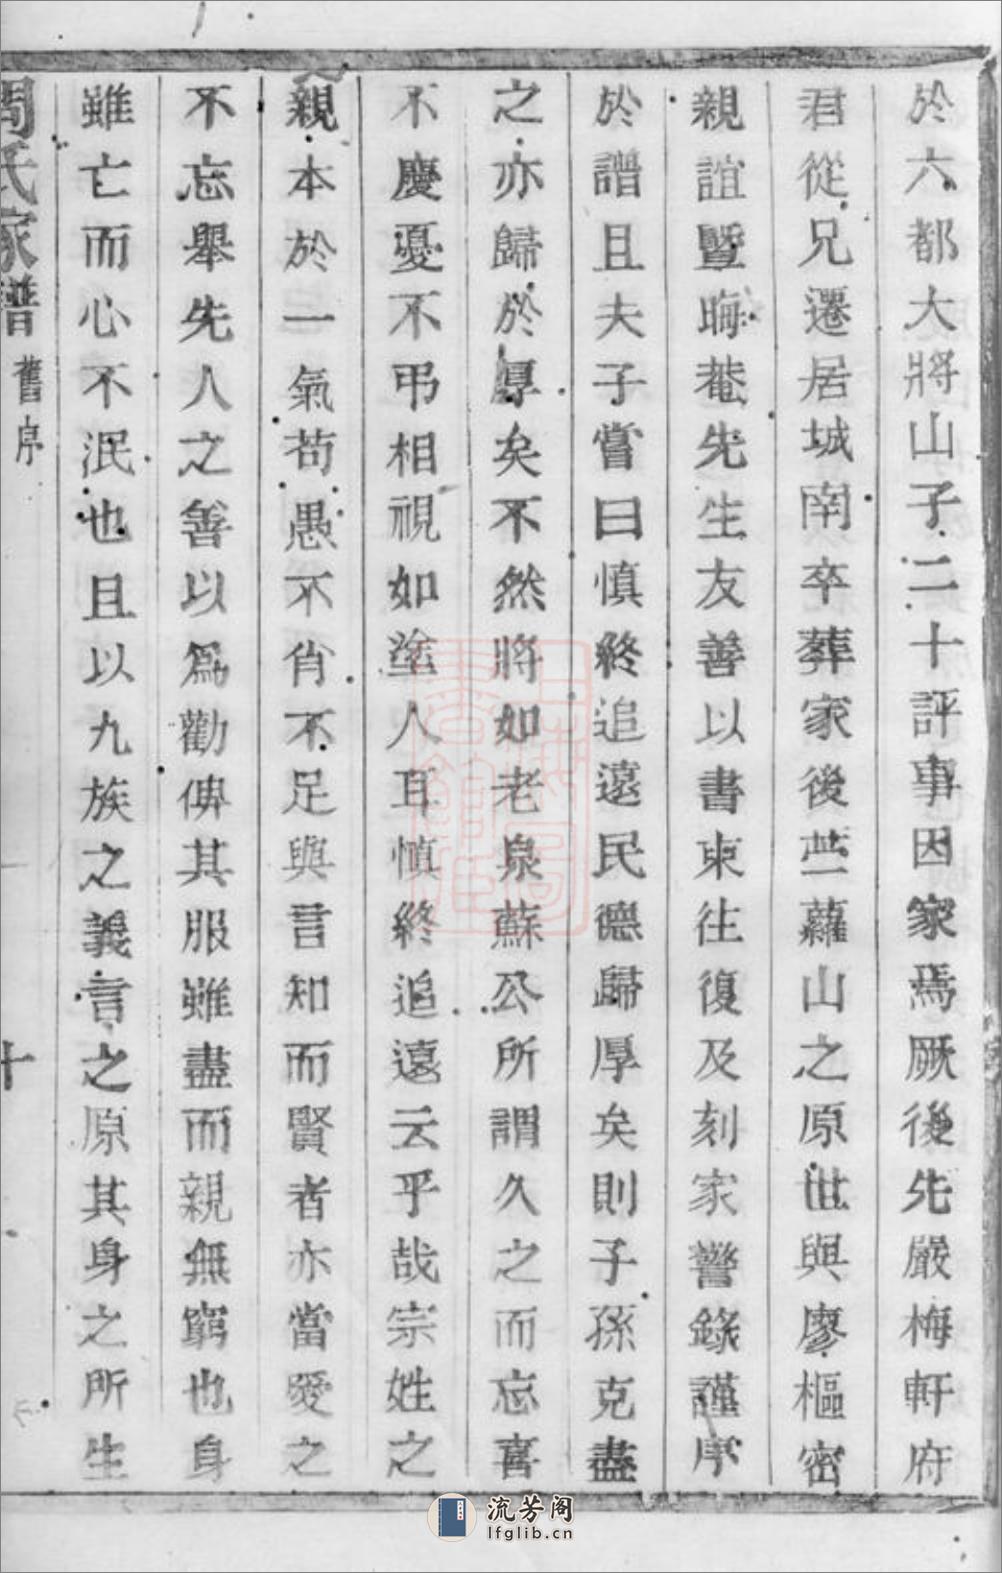 於六都大將山子二十評事因家焉厥後先嚴梅軒府
君從兄遷居城南卒葬家後苎蘿山之原世與廖樞密
親誼暨晦菴先生友善以書柬往復及刻家譽錄謹序
於譜且夫子嘗曰慎終追遠民德歸厚矣則子孫克盡
之亦歸於厚矣不然將如老泉蘇公所謂久之而忘喜
不慶憂不弔相視如塗人耳慎終追遠云乎哉宗姓之
親本於一氣苟愚不肖不足與言知而賢者亦當愛之
不忘舉先人之善以爲勸俾其服雖盡而親無窮也身
雖亡而心不泯也且以九族之義言之原其身之所生
周氏家譜 舊序 十
流芳阁
lfglib.cn